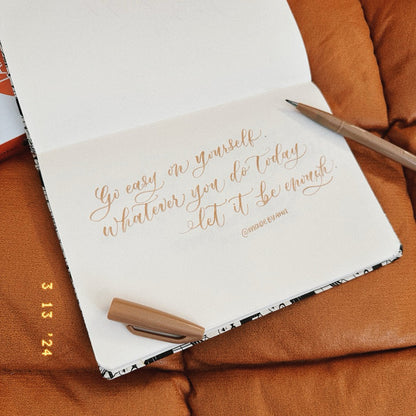 Go easy on yourself.
whatever you do today
let it be enough.
3 13 '24